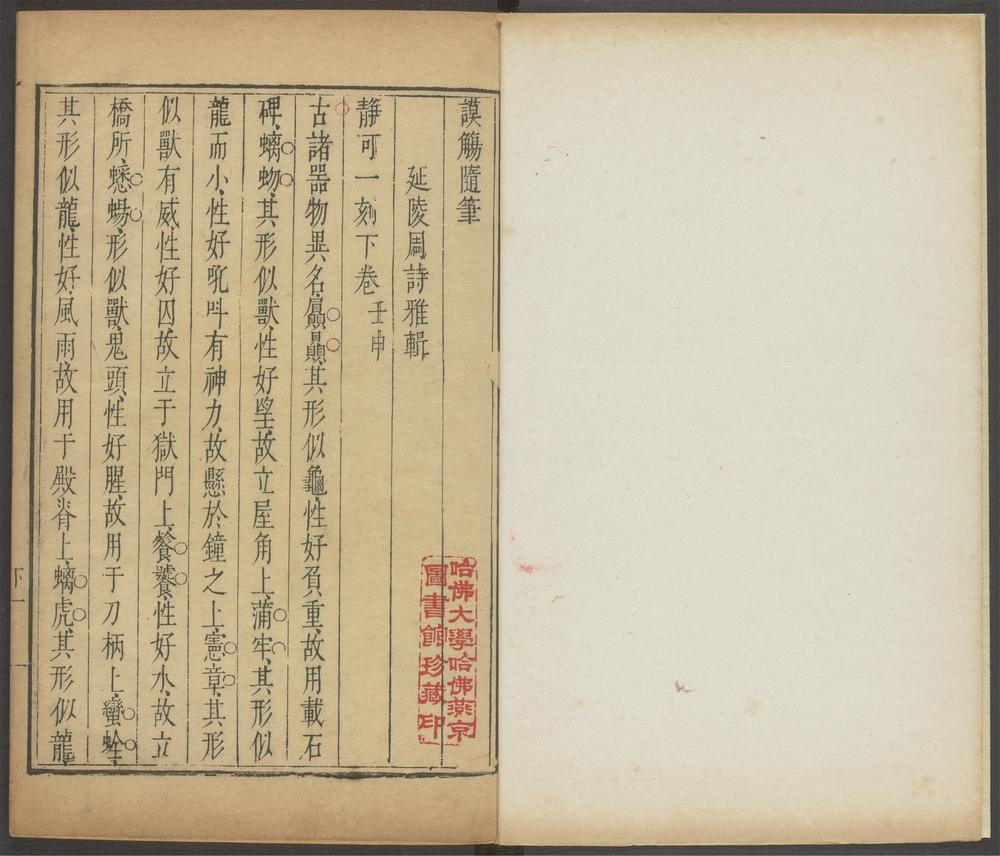 謨觴隨筆
延陵周詩雅輯
靜可一刻下卷 壬申
古諸器物異名、屭贔、其形似龜、性好負重、故用載石
碑、螭𧉚、其形似獸、性好望、故立屋角上、蒲牢、其形似
龍而小、性好吼叫、有神力、故懸於鐘之上、憲章、其形
似獸有威、性好囚、故立于獄門上、饕餮、性好水、故立
橋所、蟋蜴、形似獸、鬼頭、性好腥、故用于刀柄上、蠻蛤、
其形似龍、性好風雨、故用于殿脊上、螭虎、其形似龍
下 一
哈佛大學哈佛燕京
圖書館珍藏印